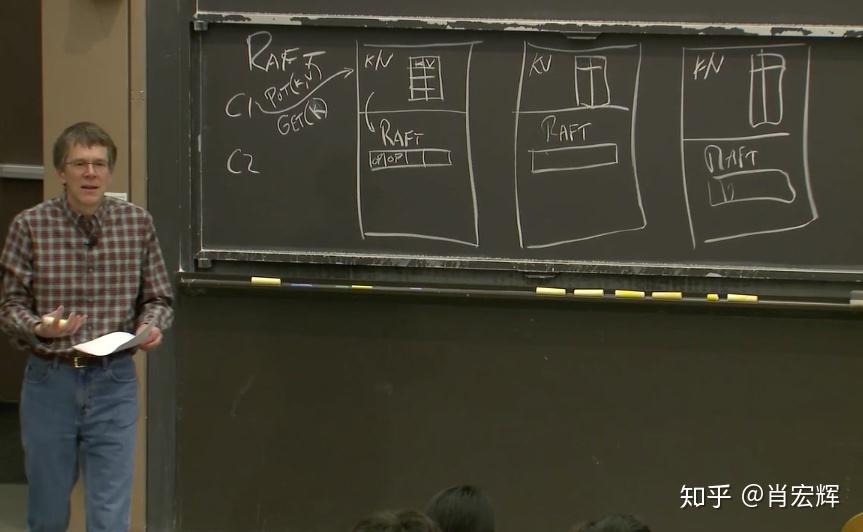 RAFT
C1 PUT(K,V)
GET(K)
C2
KV K V
RAFT
OP|OP|
KV
RAFT
KV
RAFT
知乎 @肖宏辉